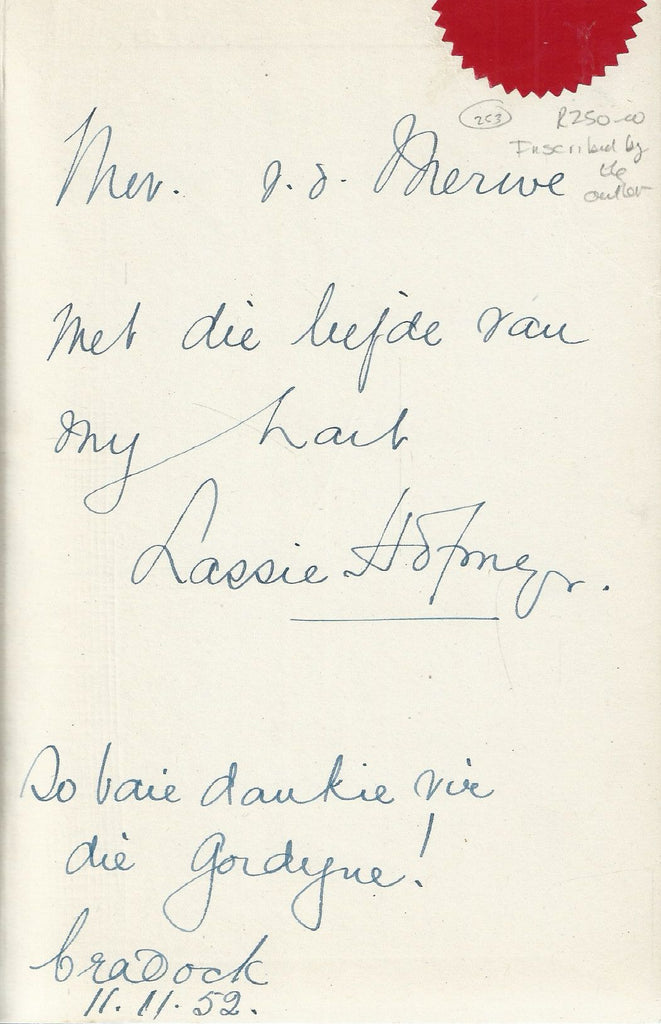 253 R250-00
Inscribed by
the
author
Mev. v.d. Merwe
Met die liefde van
my hart
Lassie Hofmeyr.
So baie dankie vir
die Gordyne!
Cradock
11.11.52.